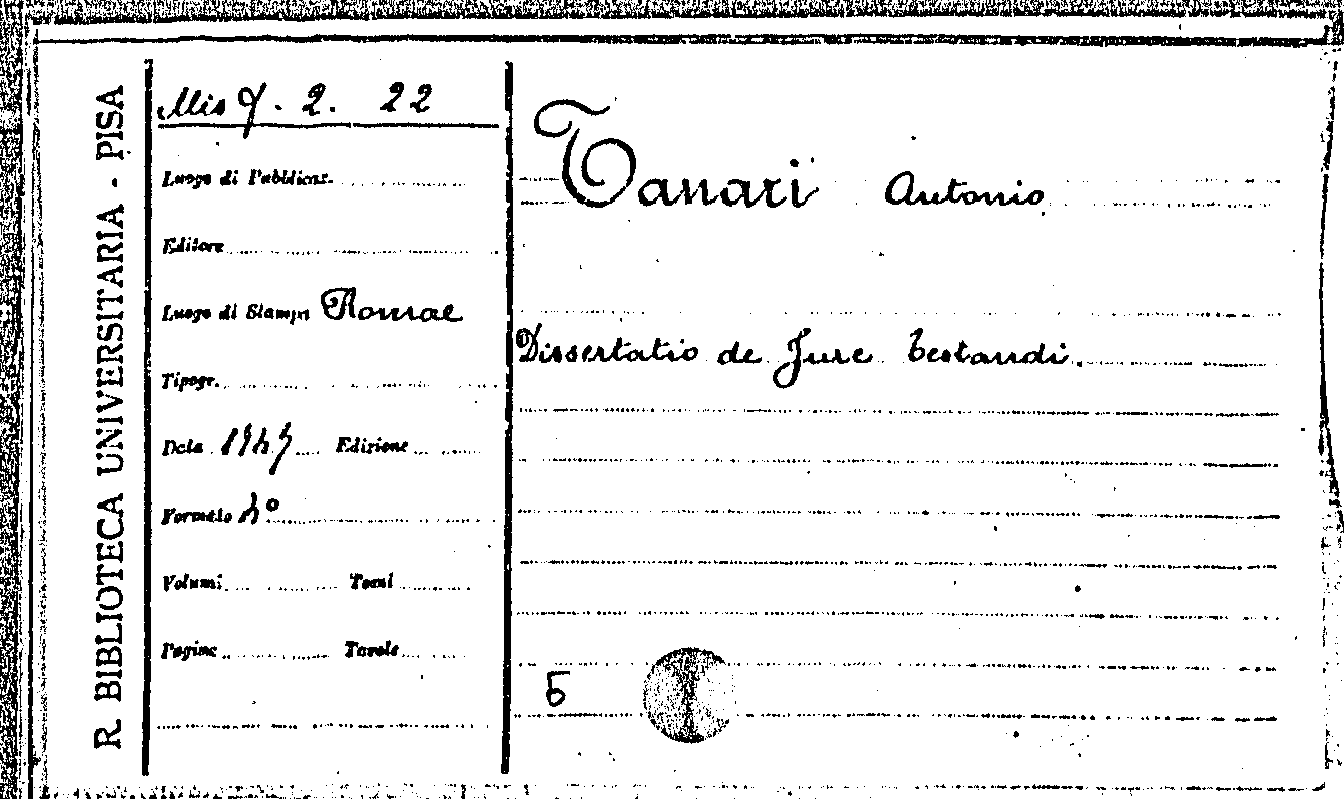 R. BIBLIOTECA UNIVERSITARIA - PISA
Mis 9. 2. 22
Luogo di Pubblicaz.
Editore
Luogo di Stampa Romae
Tipogr.
Data Edizione
Formato 4°
Volumi Tomi
Pagine Tavole
Tanari Antonio
Dissertatio de Jure testandi.
5